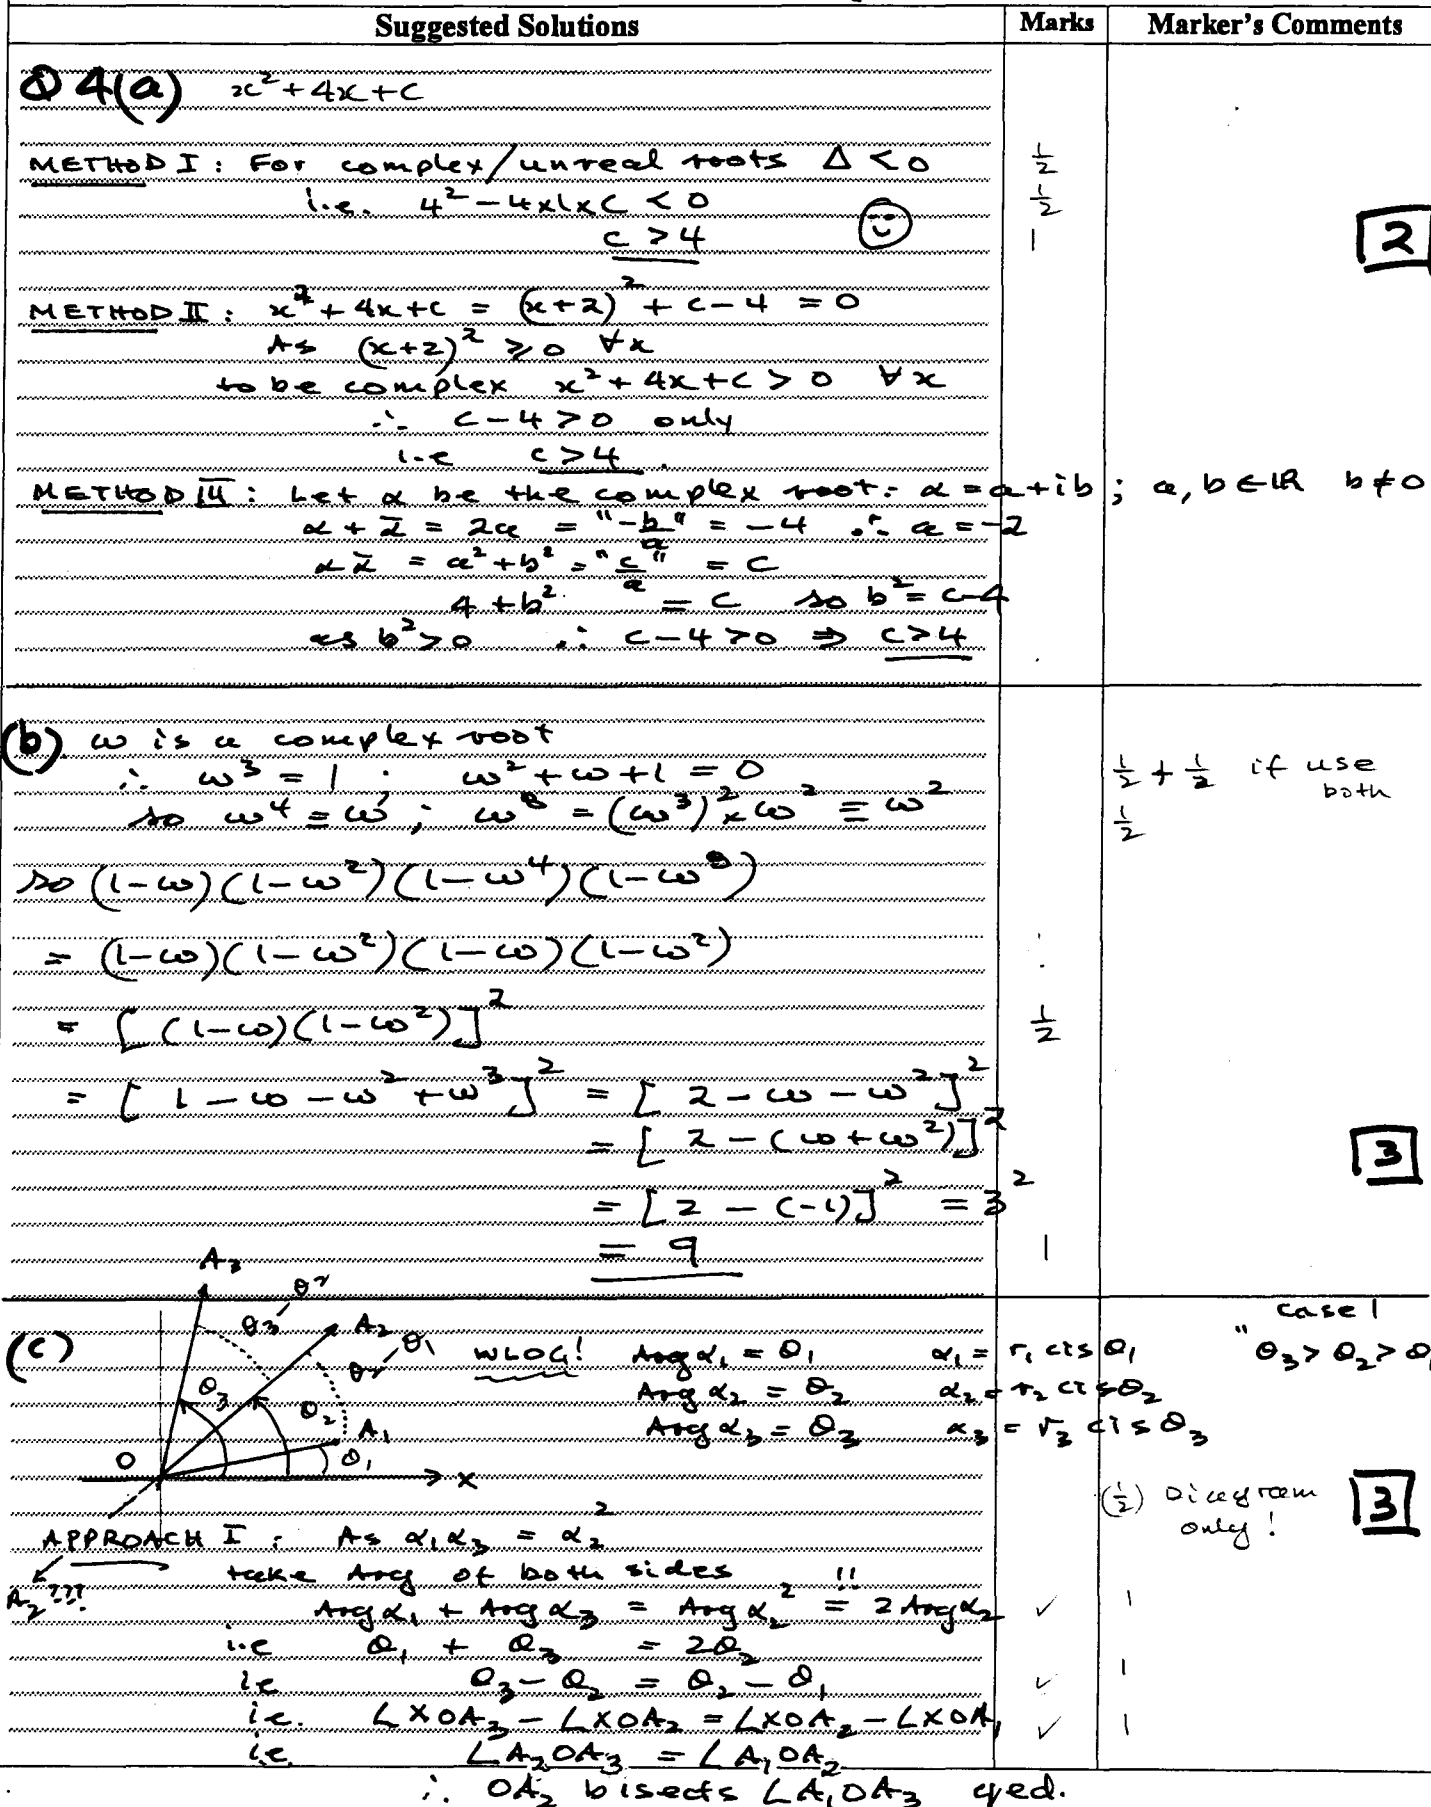 Suggested Solutions Marks Marker's Comments
Q 4(a) x² + 4x + c
METHOD I : For complex/unreal roots Δ < 0 ½
i.e. 4² − 4x1xc < 0 ½
c > 4 1 2
METHOD II : x² + 4x + c = (x+2)² + c − 4 = 0
As (x+2)² ≥ 0 ∀x
to be complex x² + 4x + c > 0 ∀x
∴ c − 4 > 0 only
i.e c > 4.
METHOD III : Let α be the complex root. α = a + ib ; a, b ∈ ℝ b ≠ 0
α + ᾱ = 2a = "−b/a" = −4 ∴ a = −2
αᾱ = a² + b² = "c/a" = c
4 + b² = c so b² = c−4
as b² > 0 ∴ c − 4 > 0 ⇒ c > 4
(b) ω is a complex root
∴ ω³ = 1 ; ω² + ω + 1 = 0 ½ + ½ if use both
so ω⁴ = ω ; ω⁸ = (ω³)² x ω² = ω² ½
so (1−ω)(1−ω²)(1−ω⁴)(1−ω⁸)
= (1−ω)(1−ω²)(1−ω)(1−ω²)
= [(1−ω)(1−ω²)]² ½
= [1 − ω − ω² + ω³]² = [2 − ω − ω²]²
= [2 − (ω + ω²)]²
3
= [2 − (−1)]² = 3²
= 9 1
A₃
θ₃−θ₂ case 1
(c) A₂ θ₂−θ₁ WLOG! Arg α₁ = θ₁ α₁ = r₁ cis θ₁ " θ₃ > θ₂ > θ₁
θ₃ Arg α₂ = θ₂ α₂ = r₂ cis θ₂
θ₂ A₁ Arg α₃ = θ₃ α₃ = r₃ cis θ₃
O θ₁ x
(½) Diagram only! 3
APPROACH I : As α₁α₃ = α₂²
take Arg of both sides
A₂ ??? Arg α₁ + Arg α₃ = Arg α₂² =!! 2 Arg α₂ ✓ 1
i.e θ₁ + θ₃ = 2θ₂
ie θ₃ − θ₂ = θ₂ − θ₁ ✓ 1
i.e. ∠XOA₃ − ∠XOA₂ = ∠XOA₂ − ∠XOA₁ ✓ 1
i.e. ∠A₂OA₃ = ∠A₁OA₂
∴ OA₂ bisects ∠A₁OA₃ qed.